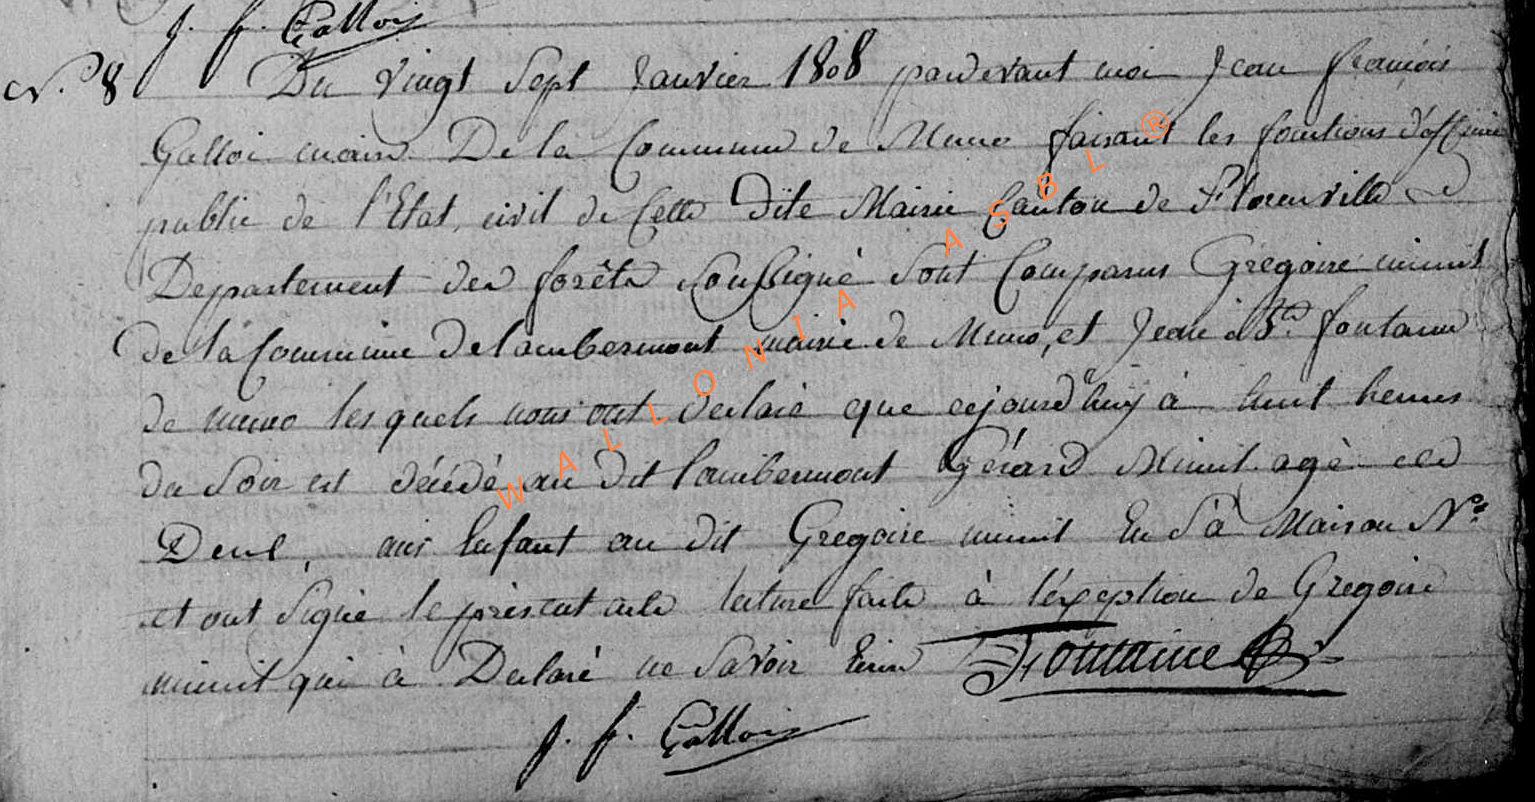 J. f. Galloi
N.° 8 Du vingt Sept Janvier 1808 pardevant moi Jean françois
Galloi maire De la Commune de Muno faisant les fonctions d'officier
public de l'Etat civil de Cette Dite Mairie Canton de Florenville
Departement des forêts Soussigné Sont Comparus Gregoire minuit
de la Commune De lambermont mairie de Muno, et Jean B.te fontaine
de muno les quels nous ont declaré que cejourd'huy à huit heures
du Soir est décédé au dit lambermont Gérard Minuit agé de
Deux ans Enfant au dit Gregoire minuit En Sa Maison N.°
et ont Signé le présent acte lecture faite à l'éxception de Gregoire
minuit qui à Declaré ne Savoir Ecrire Fontaine
J. f. Galloi
WALLONIA ASBL ®